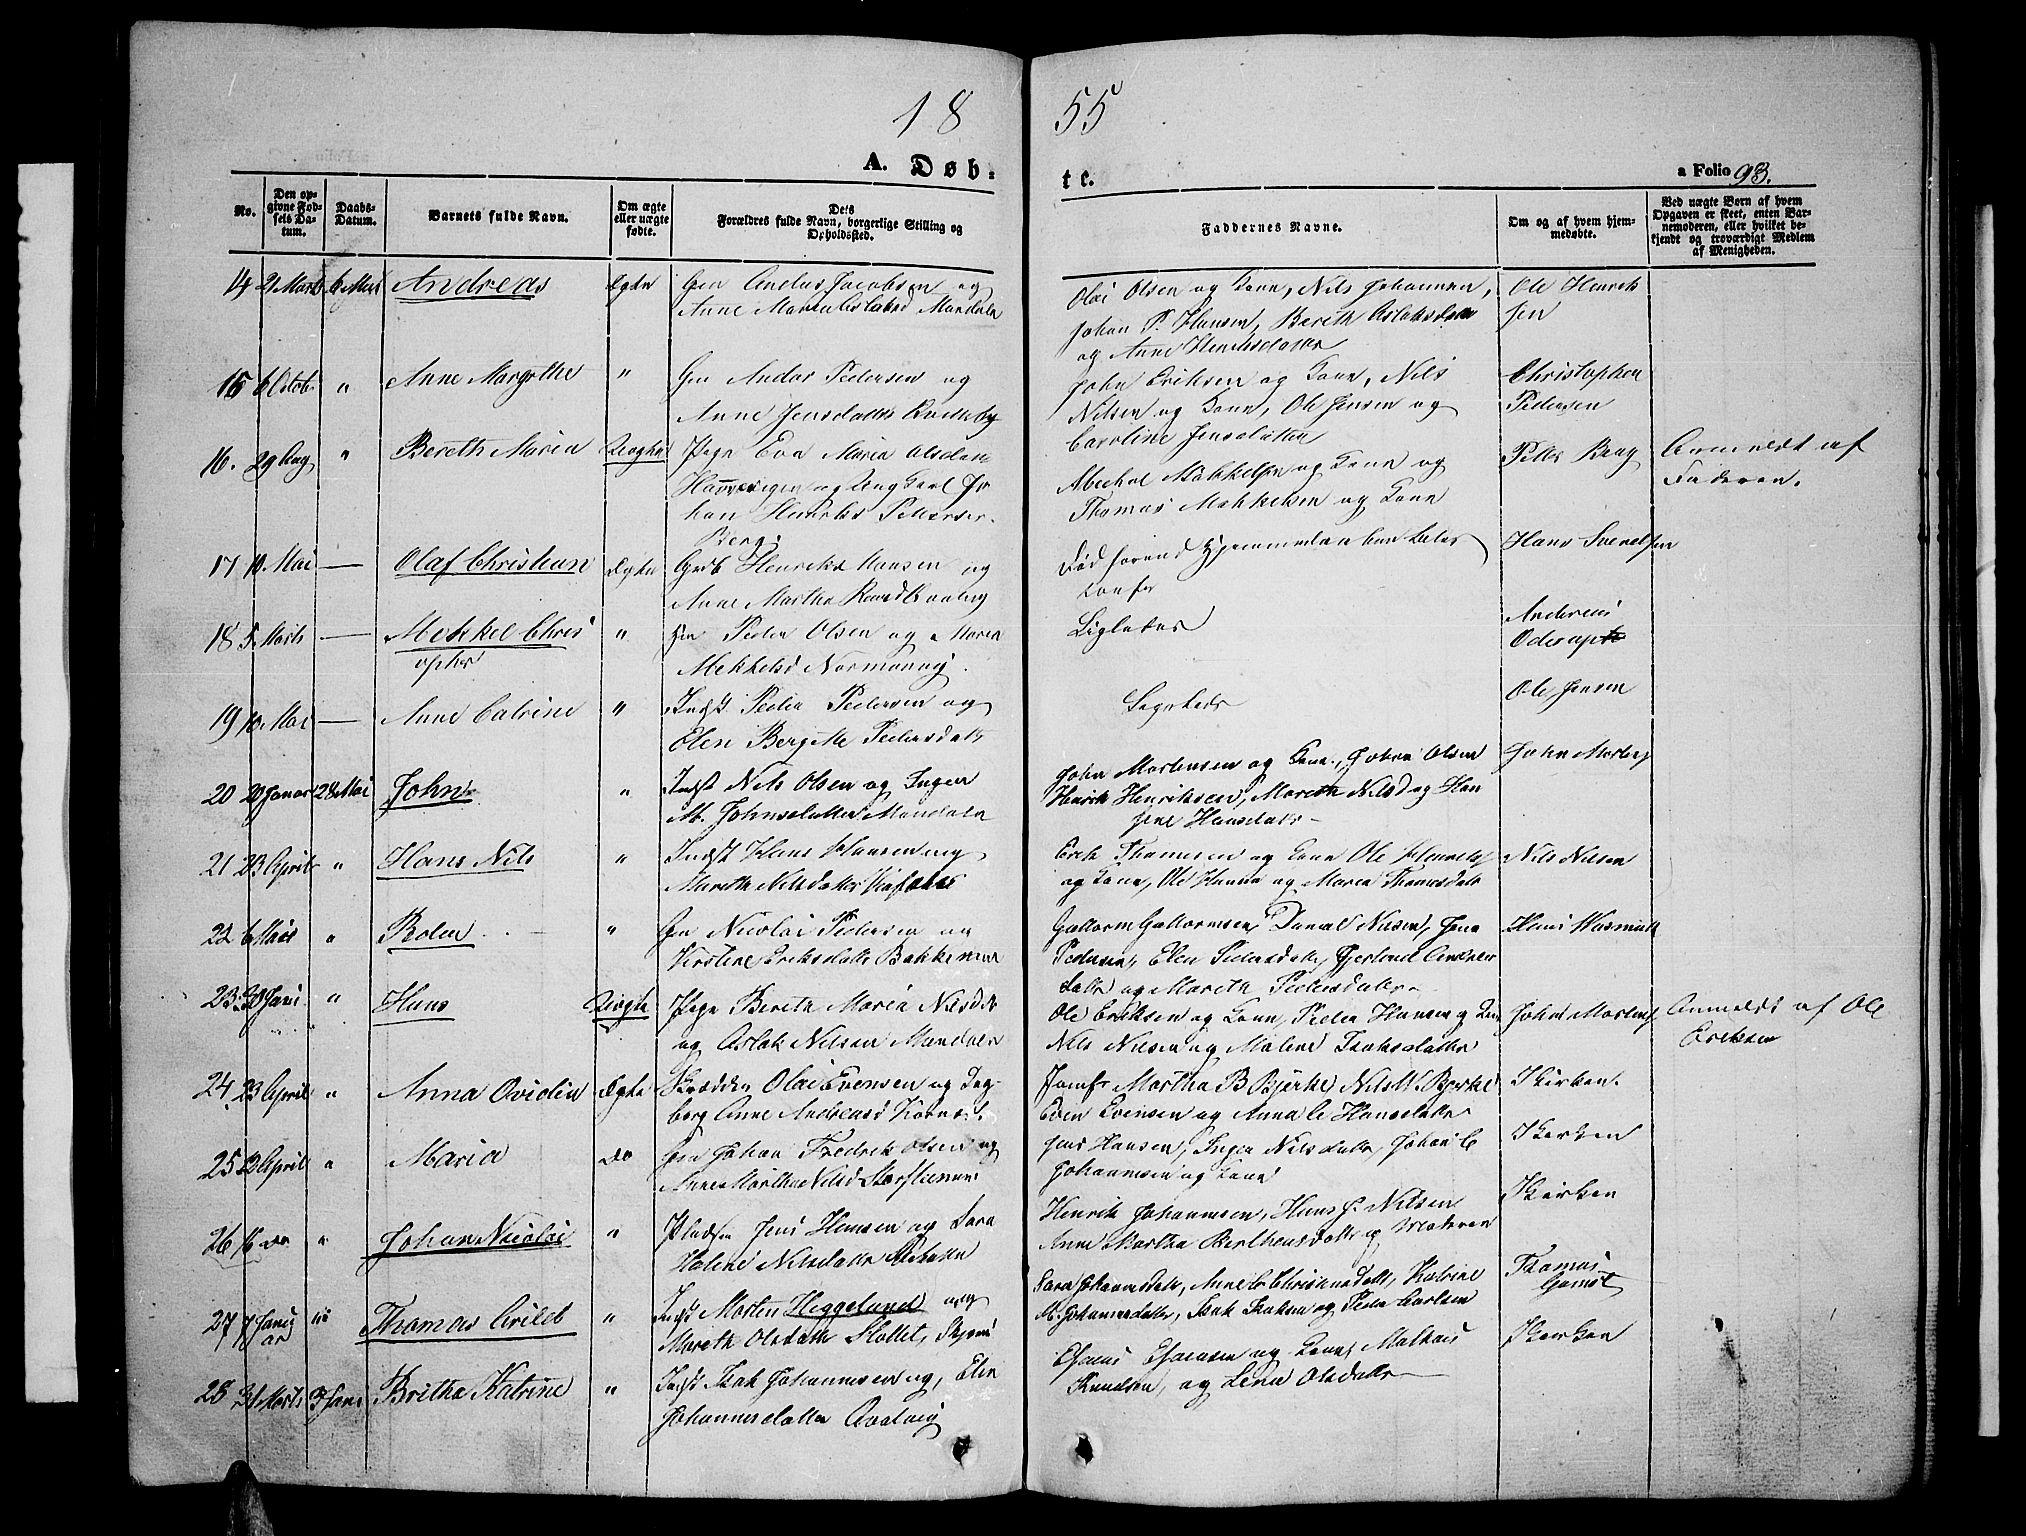 18 55
A. Døb-
te.
a Folio 93.
No.
Den op-
givne Fød-
sels Da-
tum.
Daabs-
Datum.
Barnets fulde Navn.
Om ægte
eller uægte
fødte.
Dets
Forældres fulde Navn, borgerlige Stilling og
Opholdssted.
Faddernes Navne.
Om og af hvem hjem-
medøbte.
Ved uægte Børn af hvem
Opgaven er skeet, enten Bar-
nemoderen, eller hvilket be-
kjendt og troværdigt Medlem
af Menigheden.
14 21 Marts 6 Mai Andreas Ægte Gm Andas Jacobsen og
Anne Maria Mandaln
Olai Olsen og Kone, Nils Johannesen,
Johan P. Hansen, Bereth Aslaksdatter
og Anne Henriksdatter
Ole Henrik
sen
15 6 Octob " Anne Margrethe " Gm Andas Pedersen og
Anne Jensdatter Kvæneby
John Eriksen og Kone, Nils
Nilsen og Kone, Ole Jensen og
Caroline Jensdatter
Christopher
Pedersen
16. 29 Aug " Bereth Maria Uægte Pige Eva Maria Olsdtr
og Ung Karl Jo
han Henrik Pettersen
Berg.
Michel Mikkelsen og Kone og
Thomas Mikkelsen og Kone
Petter Berg
Anmeldt af
Faderen.
17 10 Mai — Olaf Christian Ægte Henrik Hansen og
Anne Martha
Død forend Hjemmedaaben
Hans Svendsen
18 5 Marts — Mekkel Chris
opher " Gm Peder Olsen og Maria
Mekkelsd Normanvig.
Ligeledes
Andreas
19 10 Mai — Anne Catrine " Indst Peder Pedersen og
Elen Bergitte Pedersdatr
Ligeledes
Ole Jensen
20 20 Januar 28 Mai John " Indst Nils Olsen og Inger
M. Johnsdatter Mandaln
John Mortensen og Kone, Johan Olsen
Henrik Henriksen, Mareth Nilsd og Han
sine Hansdatr –
John Mortens
21 23 April " Hans Nils " Indst Hans Hansen og
Mareth Nilsdatter
Erik Thomesen og Kone Ole Henriks
og Kone, Ole Hansen og Maria Thomasdatr
Nils Nilsen
22 6 Mars " " Gm Nicolai Pedersen og
Kirstine Eriksdatter Bakkemoe
Guttorm Guttormsen, Daniel Nilsen, Jens
Pedersen, Elen Pedersdatr, Gjertrud Andreas
datr og Mareth Pedersdatter
Hans Wasmuth
23. 30 Jani " Hans Uægte Pige Bereth Maria Nilsdtr
og Aslak Nilsen Mandaln
Ole Eriksen og Kone, Peder Hansen og Kone
Nils Nilsen og Malene Isaksdatter
John Mortens
Anmeldt af Ole
Eriksen
24. 23 April " Anna Ovidia Ægte Skrædder Olai Evensen og Dag
berg Anne Andreasd
Jomfr Martha B Bjerke Nils W. Bjerke
Even Evensen og Anna C Hansdatter
I Kirken.
25 23 April " Maria Do Gm Johan Fredrik Olsen og
Anne Martha Nilsd
Jens Hansen, Inger Nilsdatr, Johan C
Johannesen og Kone
I Kirken
26 16 Do " Johan Nicolai " Pladsm Jens Hansen og Sara
Helene Nilsdatter
Henrik Johannesen, Hans J. Nilsen
Anne Martha og Moderen
I Kirken
27 7 Janu
ar " Thomas " Indst Morten Heggelund og
Mareth Olsdatter Slottet,
Sara Johannesdatr, Anne C Christensdatr, Katrine
M. Johannesdatter, Isak Isaksen og Peder Carlsen
Thomas
28 31 Marts 3 Juni Britha Katrine " Indst Isak Johannesen og Elen
Johannesdatter
Esaias Esaiasen og Kone, Mathis
Knudsen, og Lena Olsdatter
I Kirken